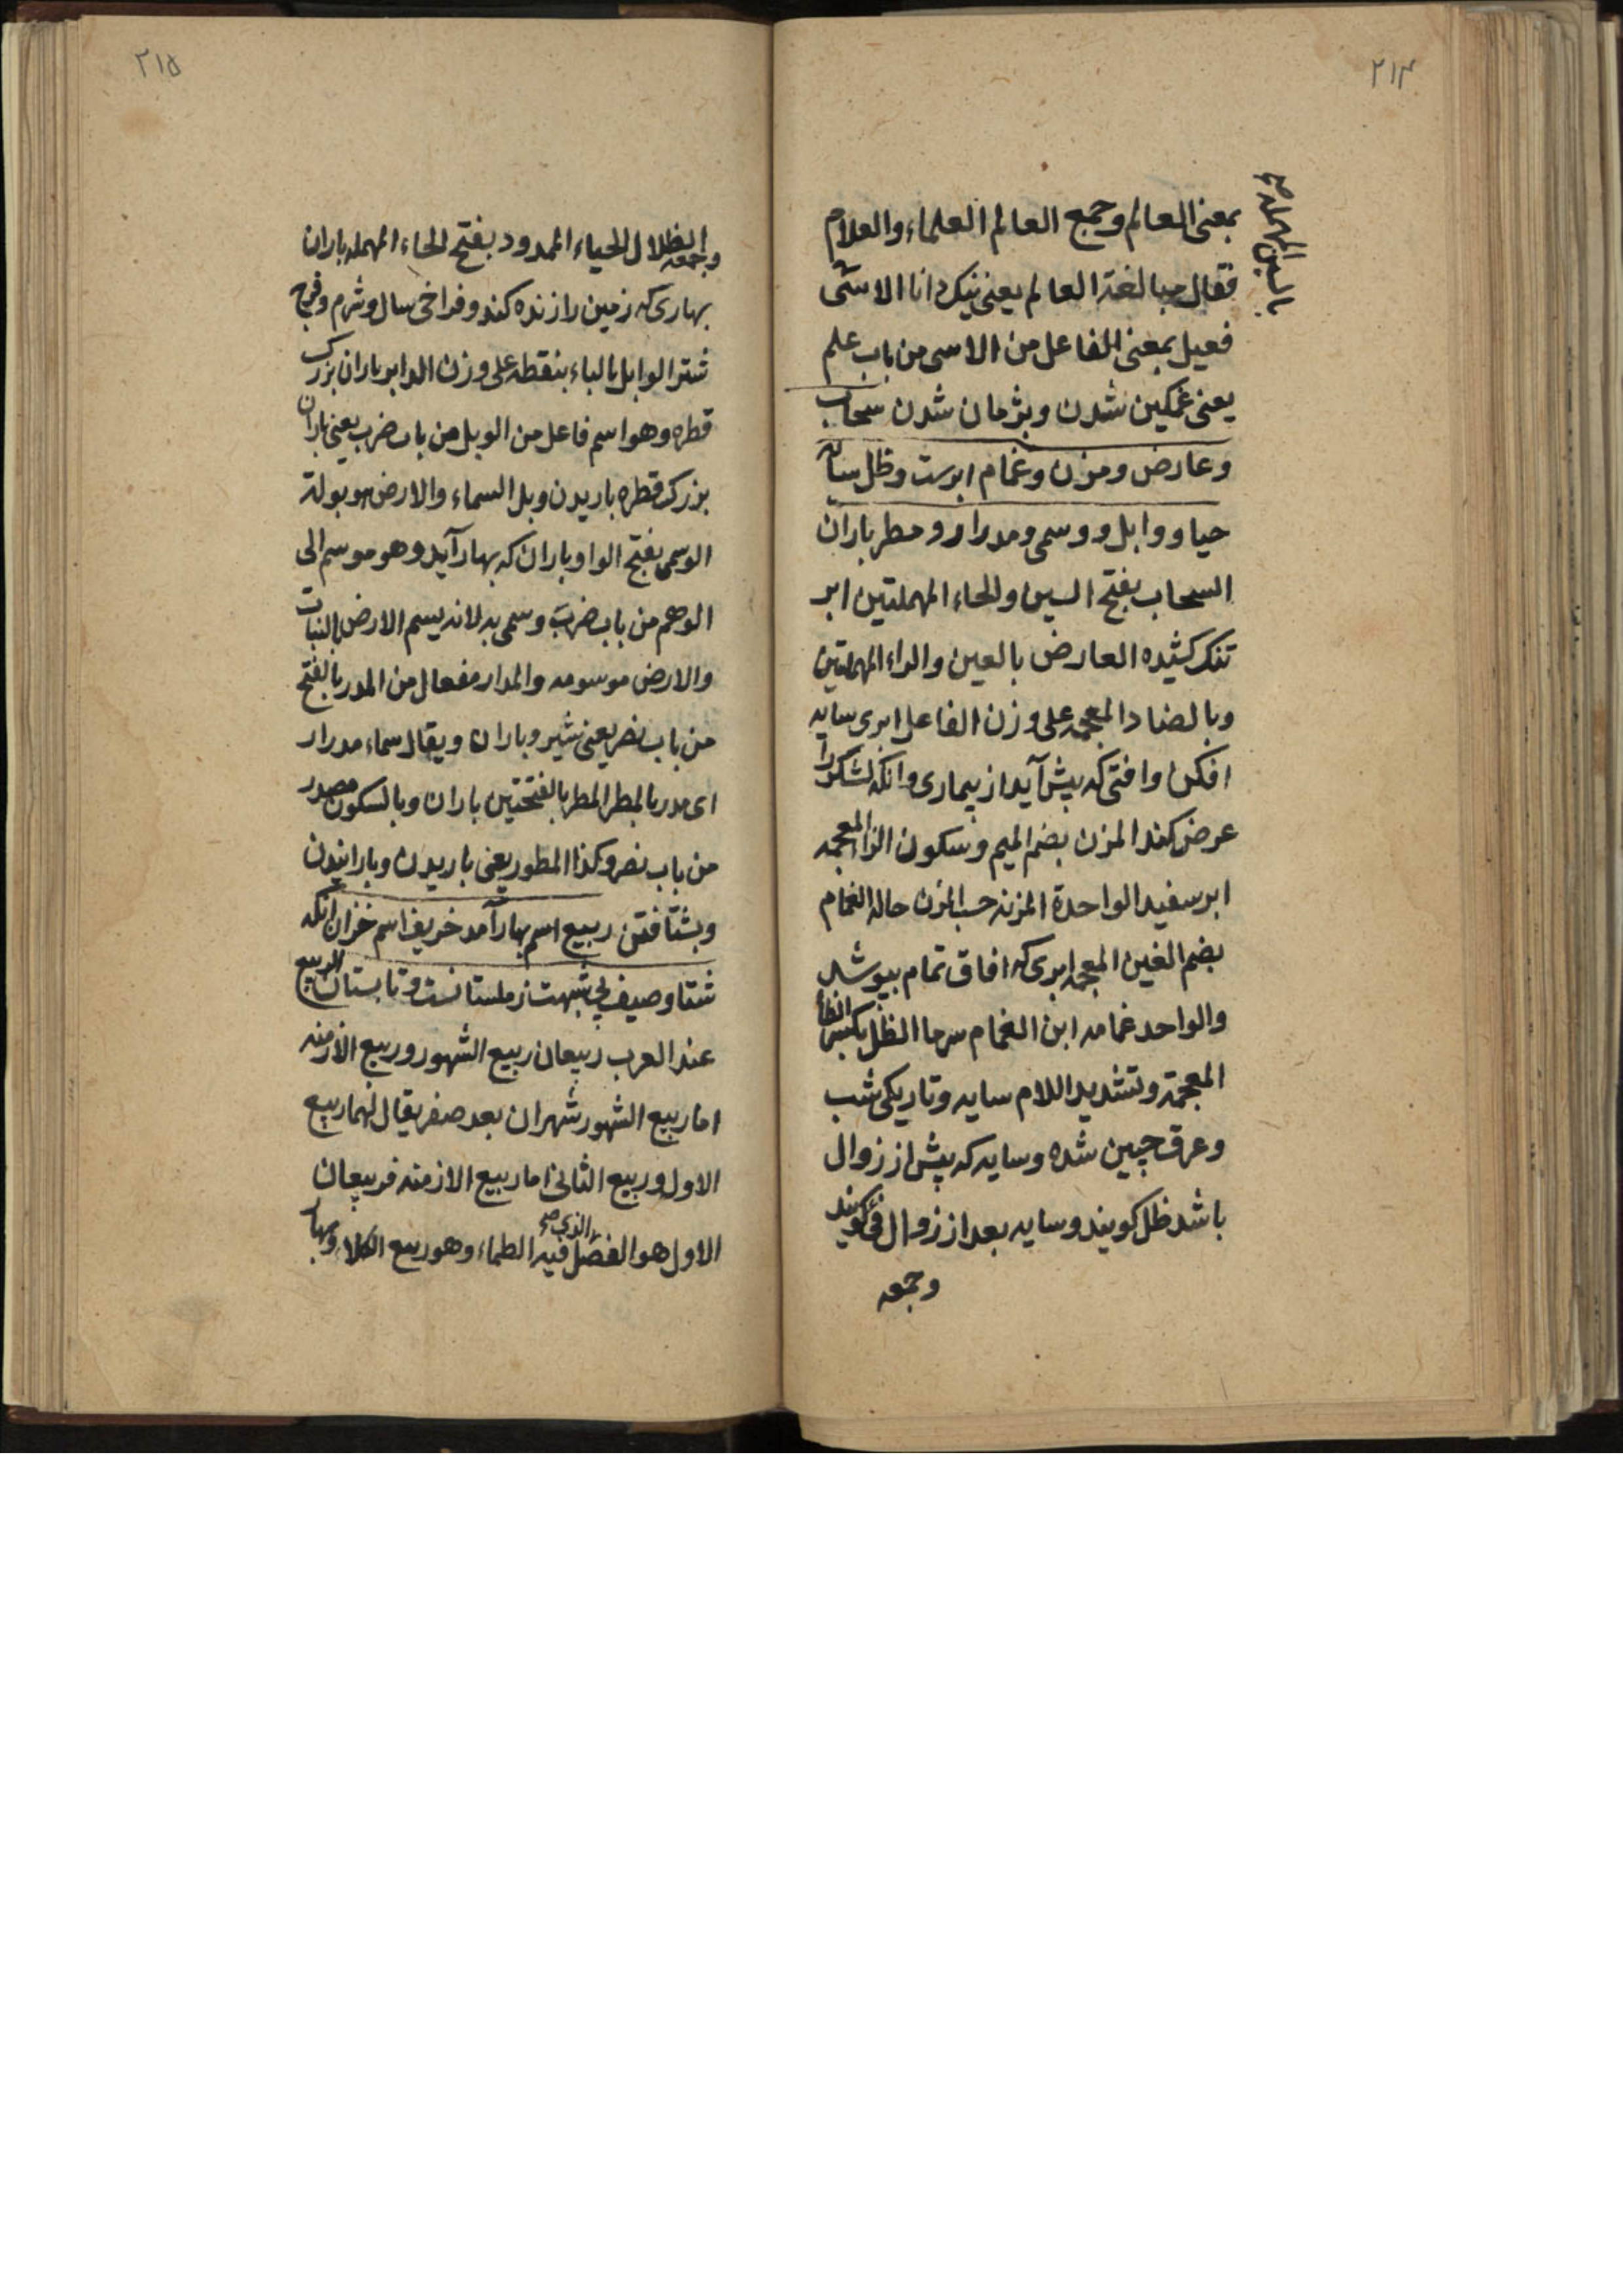 ٢١٤
بمعنی العالم وجمع العالم العلماء والعلام
فقال مبالغة العالم یعنی نیک دانا الاسی
بالسین المهملة صح
فعیل بمعنی الفاعل من الاسی من باب علم
یعنی غمکین شدن وپژمان شدن سحاب
وعارض ومزن وغمام ابرست وظل سایه
حیا ووابل ووسمی ومدرار ومطر باران
السحاب بفتح السین والحاء المهملتین ابر
تنک کشیده العارض بالعین والراء المهملتین
وبالضاد المعجمه علی وزن الفاعل ابری سایه
افکن وافتی که پیش آید از بیماری وانکه لشکر را
عرض کند المزن بضم المیم وسکون الزا المعجمه
ابر سفید الواحدة المزنه حب المزن حاله الغمام
بضم الغین المعجمه ابری که افاق تمام بپوشد
والواحد غمامه ابن الغمام سرما الظل بکسر الظأ
المعجمة وتشدید اللام سایه وتاریکی شب
وعرق چین شده وسایه که پیش از زوال
باشد ظل کویند وسایه بعد از زوال فئ کویند
وجمعه
٢١٥
وجمعه الظلال الحیاء الممدود بفتح الحاء المهمله باران
بهاری که زمین را زنده کند وفراخی سال وشرم وفرج
شتر الوابل بالباء بنقطه علی وزن الدابر باران بزرک
قطره وهو اسم فاعل من الوبل من باب ضرب یعنی باران
بزرک قطره باریدن وبل السماء والارض موبولة
الوسمی بفتح الواو باران که بهار آید وهو موسم الی
الوهم من باب ضرب وسمی به لانه یسم الارض بالنبات
والارض موسومه والمدرار مفعال من الدر بالفتح
من باب نصر یعنی شیر وباران ویقال سماء مدرار
ای مدر بالمطر المطر بالفتحتین باران وبالسکون مصدر
من باب نصر وکذا المطور یعنی باریدن وبارانیدن
وبشتافتن ربیع اسم بهار آمد خریف اسم خزان انکه
شتا وصیف بی شبهت زمستانست وتابستان الربیع
عند العرب ربیعان ربیع الشهور وربیع الازمنه
اما ربیع الشهور شهران بعد صفر یقال لهما ربیع
الاول وربیع الثانی اما ربیع الازمنه فربیعان
الاول هو الفصل الذی صح فیه الطماء وهو ربیع الکلاء وبها